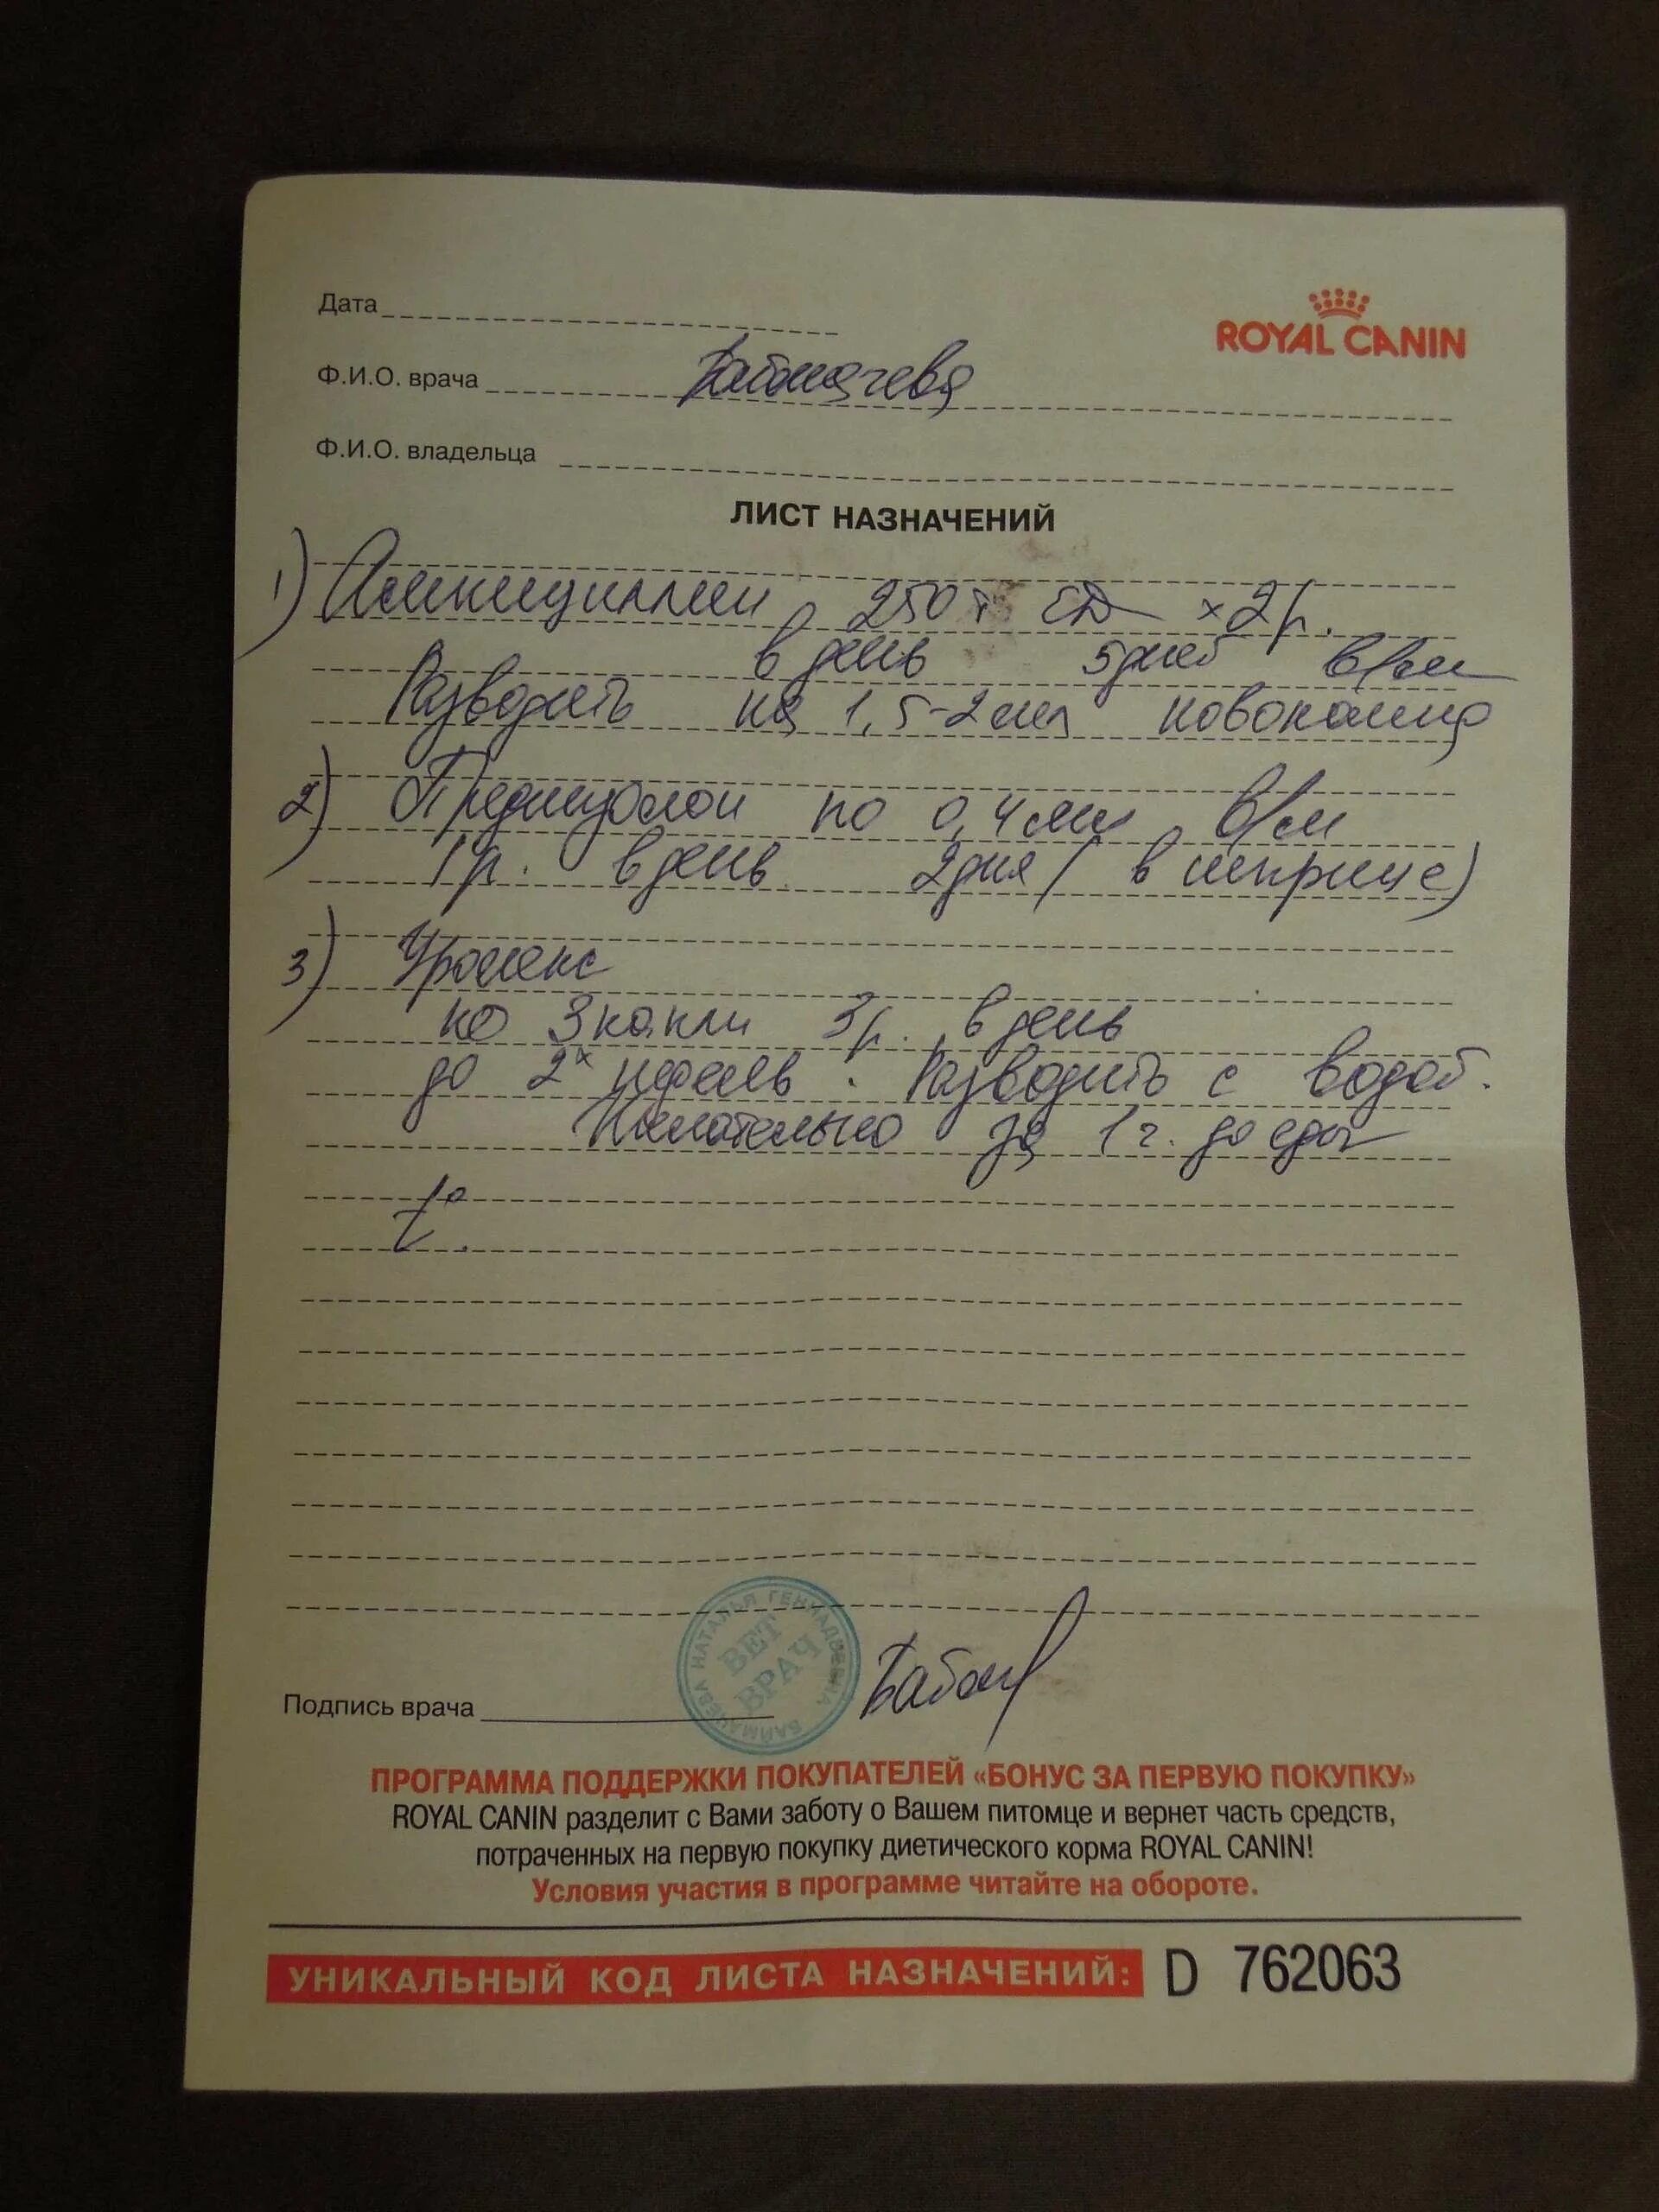 Дата
ROYAL CANIN
Ф.И.О. врача Баймачева
Ф.И.О. владельца
ЛИСТ НАЗНАЧЕНИЙ
1) Ампициллин 250 т ЕД х 2 р.
в день 5 дней в/м
Разводить на 1,5-2 мл новокаина
2) Преднизолон по 0,4 мл в/м
1 р. в день 2 дня (в шприце)
3)
по 3 капли 3 р. в день
до 2х недель. Разводить с водой.
Желательно за 1 ч. до еды
t°.
БАЙМАЧЕВА НАТАЛЬЯ ГЕННАДЬЕВНА
ВЕТ ВРАЧ
Подпись врача
ПРОГРАММА ПОДДЕРЖКИ ПОКУПАТЕЛЕЙ «БОНУС ЗА ПЕРВУЮ ПОКУПКУ»
ROYAL CANIN разделит с Вами заботу о Вашем питомце и вернет часть средств,
потраченных на первую покупку диетического корма ROYAL CANIN!
Условия участия в программе читайте на обороте.
УНИКАЛЬНЫЙ КОД ЛИСТА НАЗНАЧЕНИЙ: D 762063